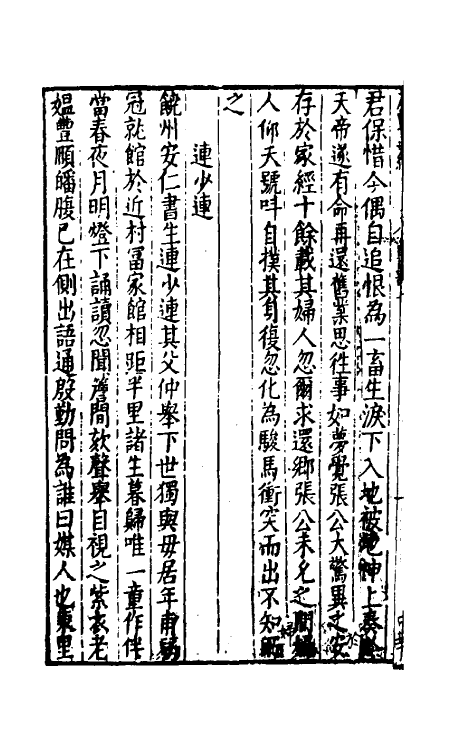 君保惜今偶自追恨為一畜生淚下入地被地神上奏
天帝遂有命再還舊業思徃事如夢覺張公大驚異之安
存於家經十餘載其婦人忽爾求還鄉張公未允之間婦
人仰天號呌自撲其身復忽化為駿馬衝突而出不知所
之
連少連
饒州安仁書生連少連其父仲舉下世獨與毋居年甫弱
冠就館於近村冨家館相距半里諸生暮歸唯一童作伴
當春夜月明燈下誦讀忽聞窓間欬聲舉目視之紫衣老
媪豐頤皤腹已在側出語通殷勤問為誰曰媒人也東里